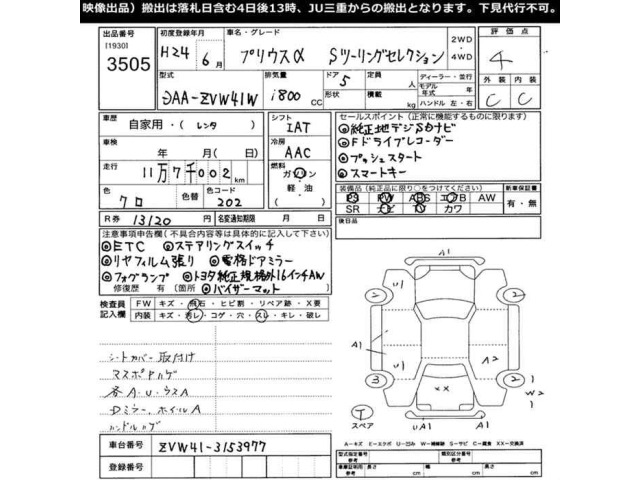 映像出品）搬出は落札日含む4日後13時、JU三重からの搬出となります。下見代行不可。
出品番号 初度登録年月 車名・グレード 2WD・4WD 評価点
[1930]
3505 H24年6月 プリウスα Sツーリングセレクション 4
型式 排気量 ドア 5 定員 人 ディーラー・並行 外装 内装
DAA-ZVW41W 1800 CC 形状 積載 kg モデル年式 年 ハンドル 左・右 C C
車歴 自家用・(レンタ) シフト IAT
車検 年 月(日) 冷房 AAC
走行 11万7千002km 燃料 ガソリン・軽油・( )
色 クロ 色替 色コード 202
R券 13120 円 名変通知期限 月 日
セールスポイント（正常に機能するものに限ります）
◎純正地デジSDナビ
◎Fドライブレコーダー
◎プッシュスタート
◎スマートキー
装備品（純正品に限り○をつけてください） 新車保証書
PS PW ABS エアB AW 有・無
SR ナビ TV カワ
後日品
注意事項申告欄（不具合内容等は具体的に記入して下さい）
◎ETC ◎ステアリングスイッチ
◎リヤフィルム張り ◎電格ドアミラー
◎フォグランプ ◎トヨタ純正規格外16インチAW
修復歴 有（箇所 ◎バイザーマット
検査員記入欄 FW キズ・飛石・ヒビ割・リペア跡・X要
内装 キズ・汚レ・コゲ・穴・スレ・キレ・破レ
シートカバー取付け
マスポヤハゲ
各A・U・ウスA
Dミラー、ホイルA
ハンドルハゲ
車台番号 ZVW41-3153977
登録番号
A1
2 U1 2
A1 U1 A2
3 XX 2 W2
1
T UA1 A1
スペア
A－キズ E－エクボ U－凹み W－補修跡 S－サビ C－腐食 XX－交換済
型式指定番号 参考 類別区分番号 参考
車庫証明用参考 長さ cm 幅 cm 高さ cm